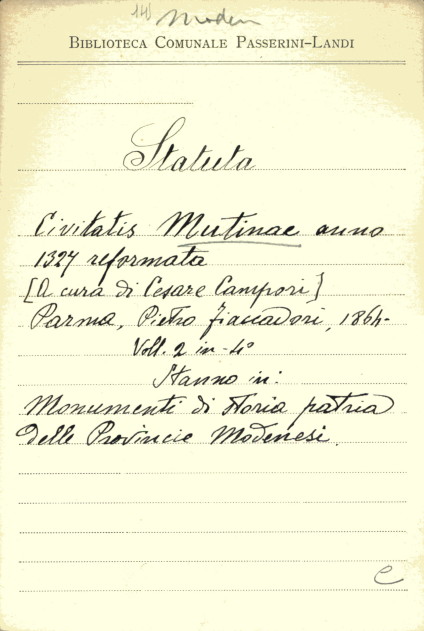 Moden
BIBLIOTECA COMUNALE PASSERINI-LANDI
Statuta
Civitatis Mutinae anno
1327 reformata
[A cura di Cesare Campori]
Parma, Pietro Fiaccadori, 1864-
Voll. 2 in-4°
Stanno in:
Monumenti di storia patria
delle Provincie Modenesi.
C